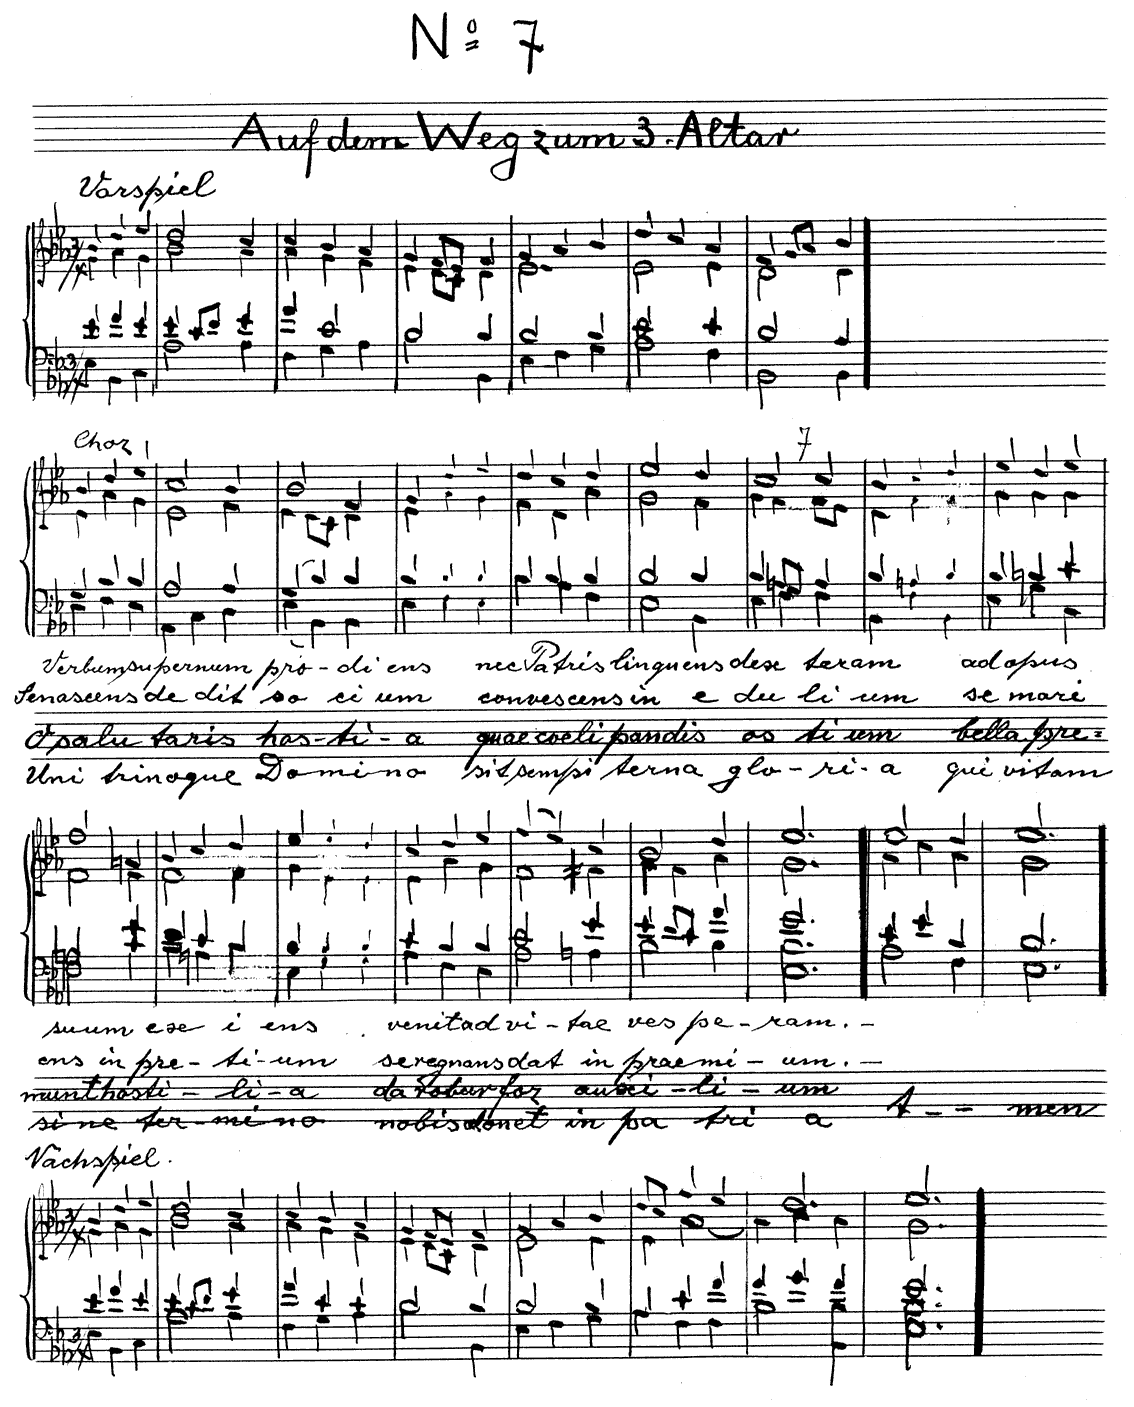 No 7
Auf dem Weg zum 3. Altar
Vorspiel
Chor
7
Verbum supernum pro-di ens nec Patris linquens dex teram ad opus
Se nascens de dit so ci um convescens in e du li um se mori
O salu taris hos-ti-a quae coeli pandis os ti um bella pre=
Uni trinoque Domino sit sempi terna glo-ri-a qui vitam
suum exe i ens venit ad vi-tae ves pe-ram.-
ens in pre-ti-um se regnans dat in praemi-um.-
munt hosti-li-a da robur fer auxi-li-um
si ne ter-mi no nobis donet in pa tri a A-- men
Nachspiel.